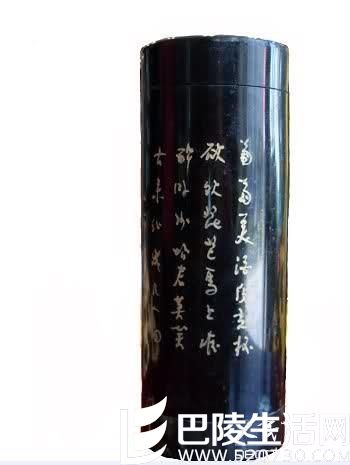 葡萄美酒夜光杯
欲飲琵琶馬上催
醉卧沙場君莫笑
古来征战几人回
巴陵生活网